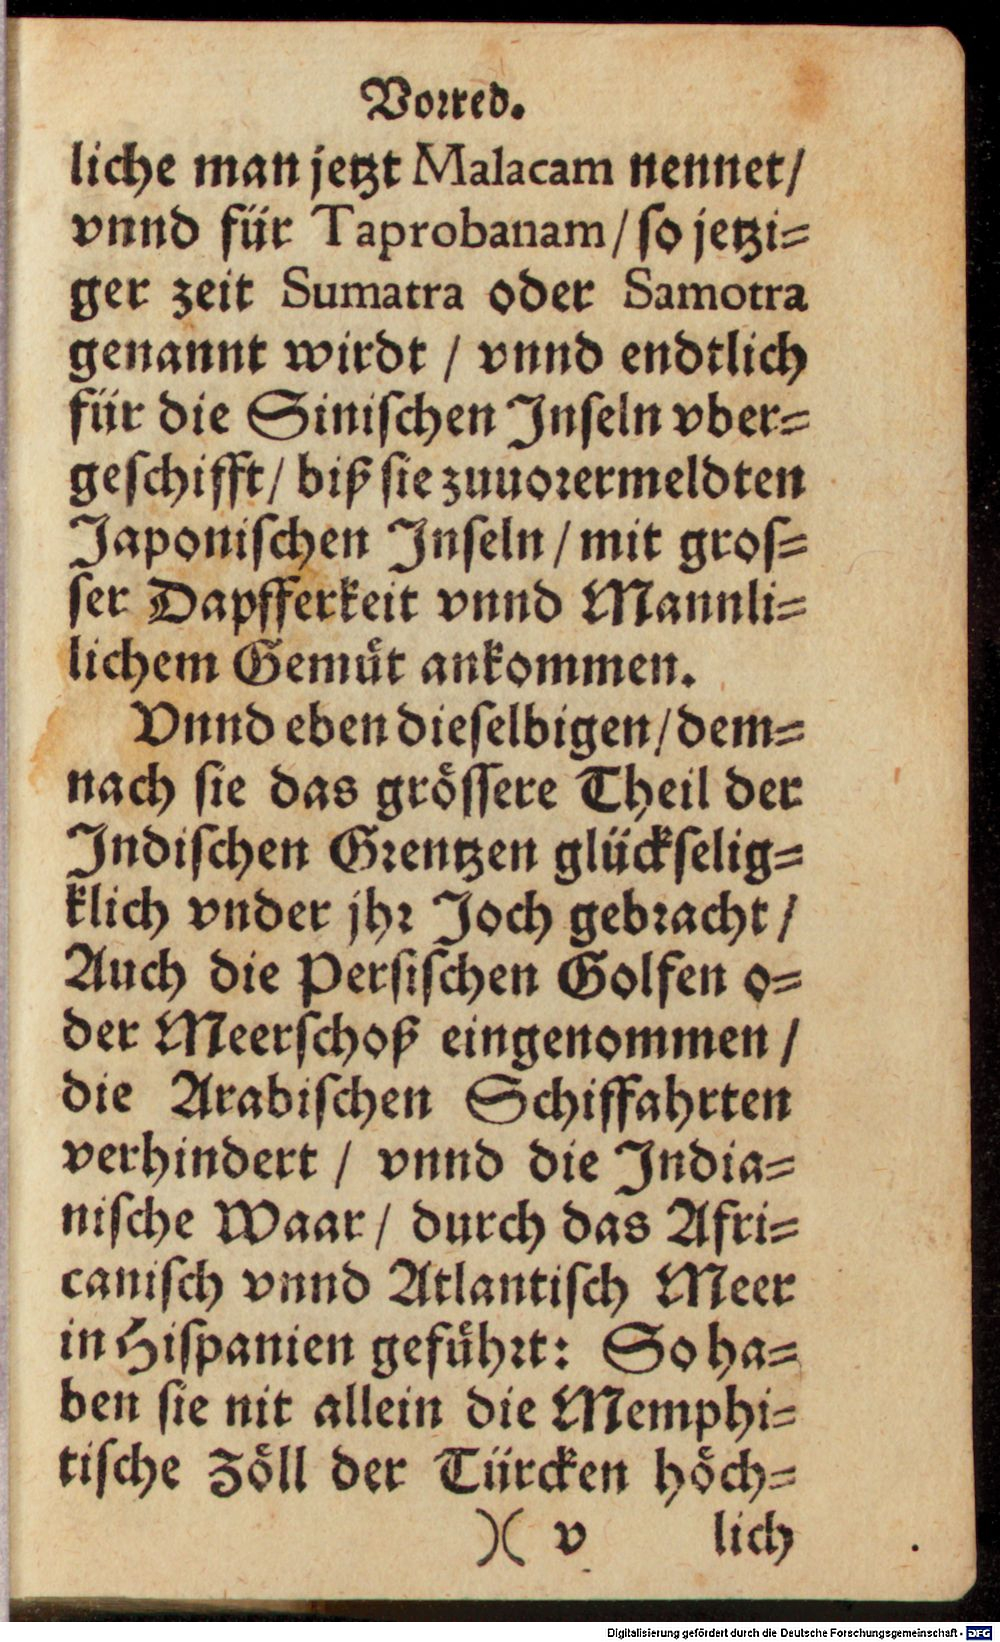 Vorred.
liche man jetzt Malacam nennet/
vnnd für Taprobanam/ so jetzi=
ger zeit Sumatra oder Samotra
genannt wirdt / vnnd endtlich
für die Sinischen Inseln vber=
geschifft/ biß sie zuuorermeldten
Japonischen Inseln / mit gros=
ser Dapfferkeit vnnd Mannli=
lichem Gemüt ankommen.
Vnnd eben dieselbigen/ dem=
nach sie das grössere Theil der
Indischen Grentzen glückselig=
klich vnder jhr Joch gebracht /
Auch die Persischen Golfen o=
der Meerschoß eingenommen /
die Arabischen Schiffahrten
verhindert / vnnd die India=
nische Waar / durch das Afri=
canisch vnnd Atlantisch Meer
in Hispanien geführt: So ha=
ben sie nit allein die Memphi=
tische Zöll der Türcken höch=
)( v lich
Digitalisierung gefördert durch die Deutsche Forschungsgemeinschaft - DFG